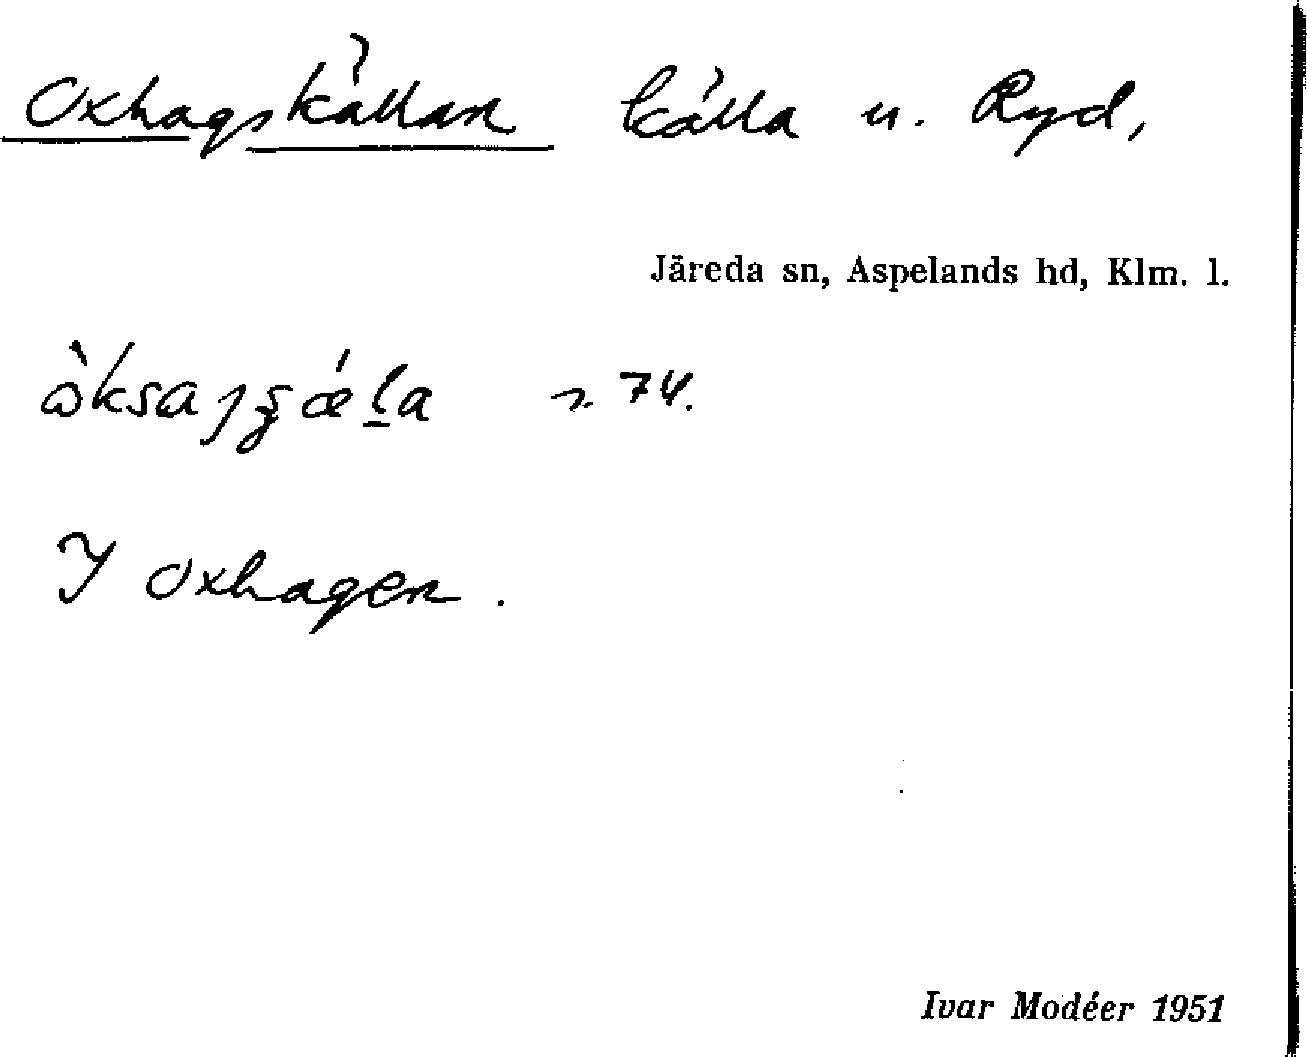 Oxhagskällan källa u. Ryd,
Järeda sn, Aspelands hd, Klm. l.
74.
I Oxhagen.
Ivar Modéer 1951